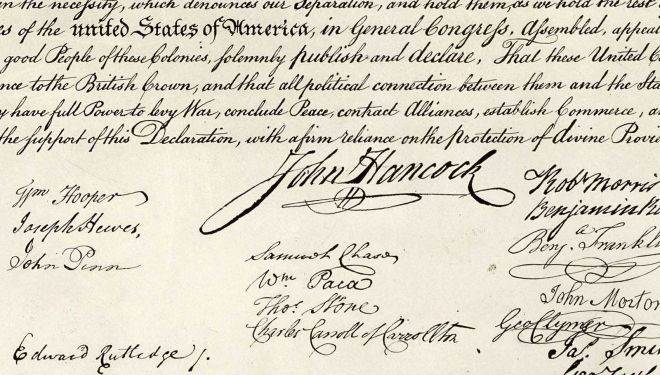 the necessity, which denounces our Separation, and hold them, as we hold the rest
of the united States of America, in General Congress, Assembled, appeal
good People of these Colonies, solemnly publish and declare, That these United
to the British Crown, and that all political connection between them and the
have full Power to levy War, conclude Peace, contract Alliances, establish Commerce,
the support of this Declaration, with a firm reliance on the protection of divine
John Hancock
Wm Hooper
Joseph Hewes,
John Penn
Edward Rutledge /.
Samuel Chase
Wm. Paca
Thos. Stone
Charles Carroll of Carrollton
Robt Morris
Benjamin
Benja. Frankli
John Morton
Geo Clymer
Jas. Smi